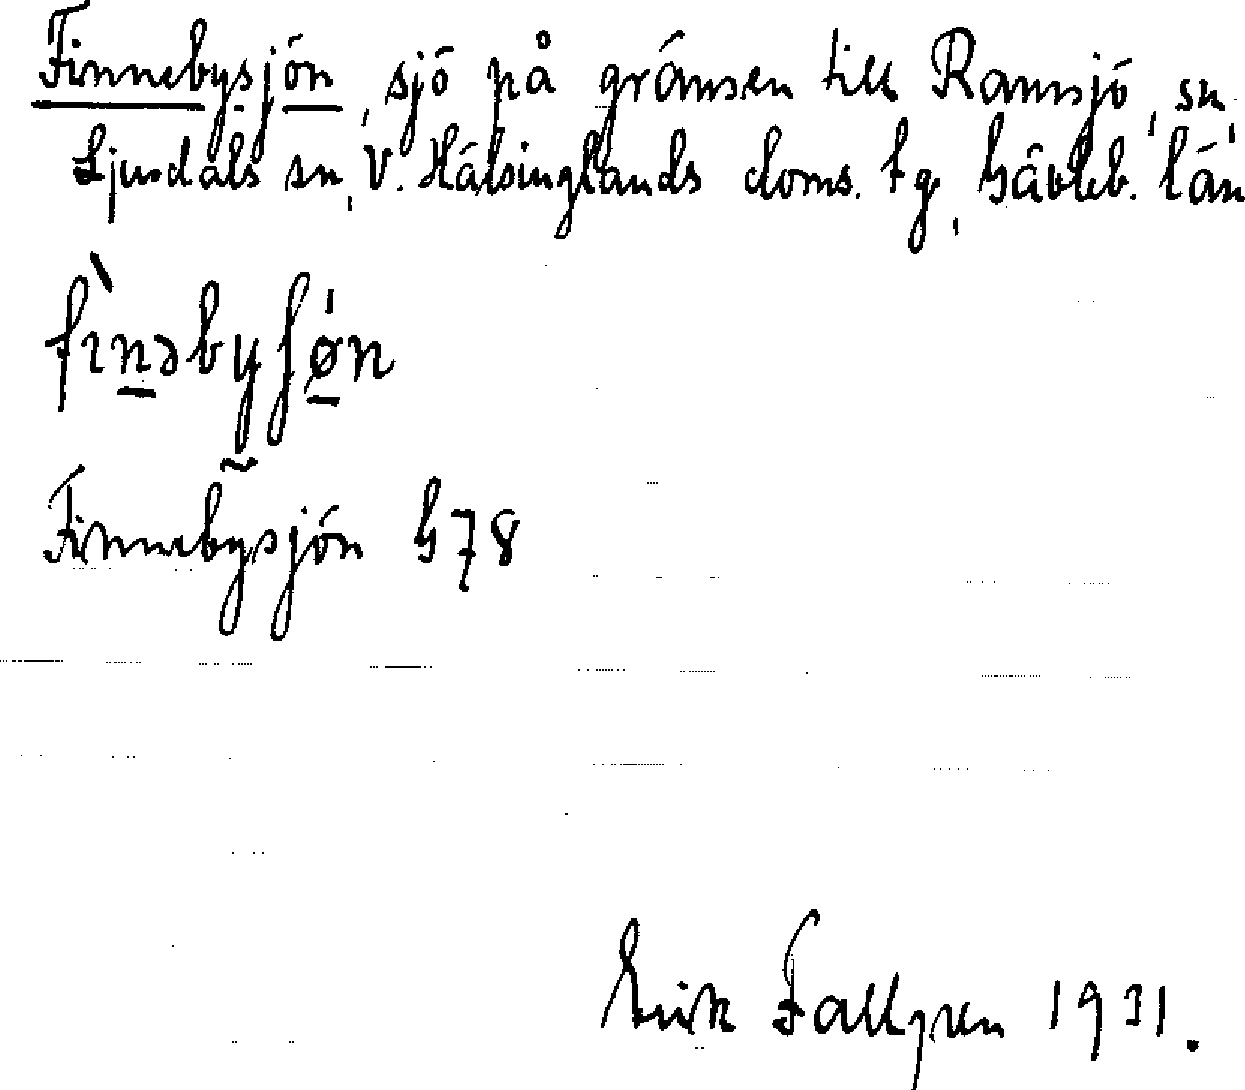 Finnebysjön, sjö på gränsen till Ramsjö, sn,
Ljusdals sn, V. Hälsinglands doms. tg, Gävleb. län
fìnəbyʃø̀n
Finnebysjön G78
Erik Fallgren 1931.